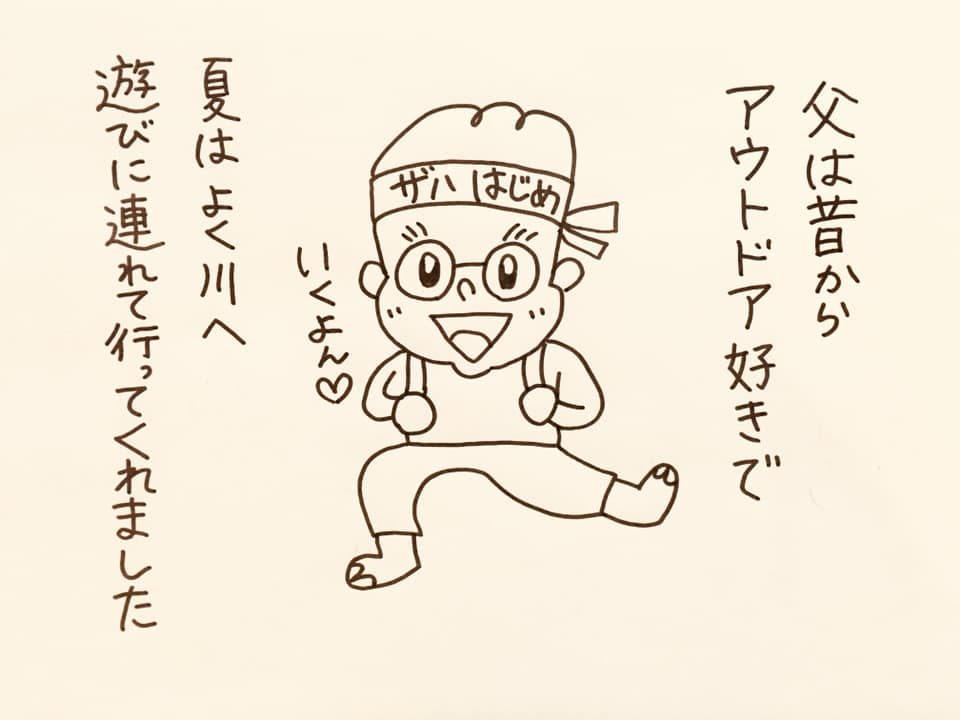 父は昔から
アウトドア好きで
ザハ はじめ
いくよん♡
夏はよく川へ
遊びに連れて行ってくれました